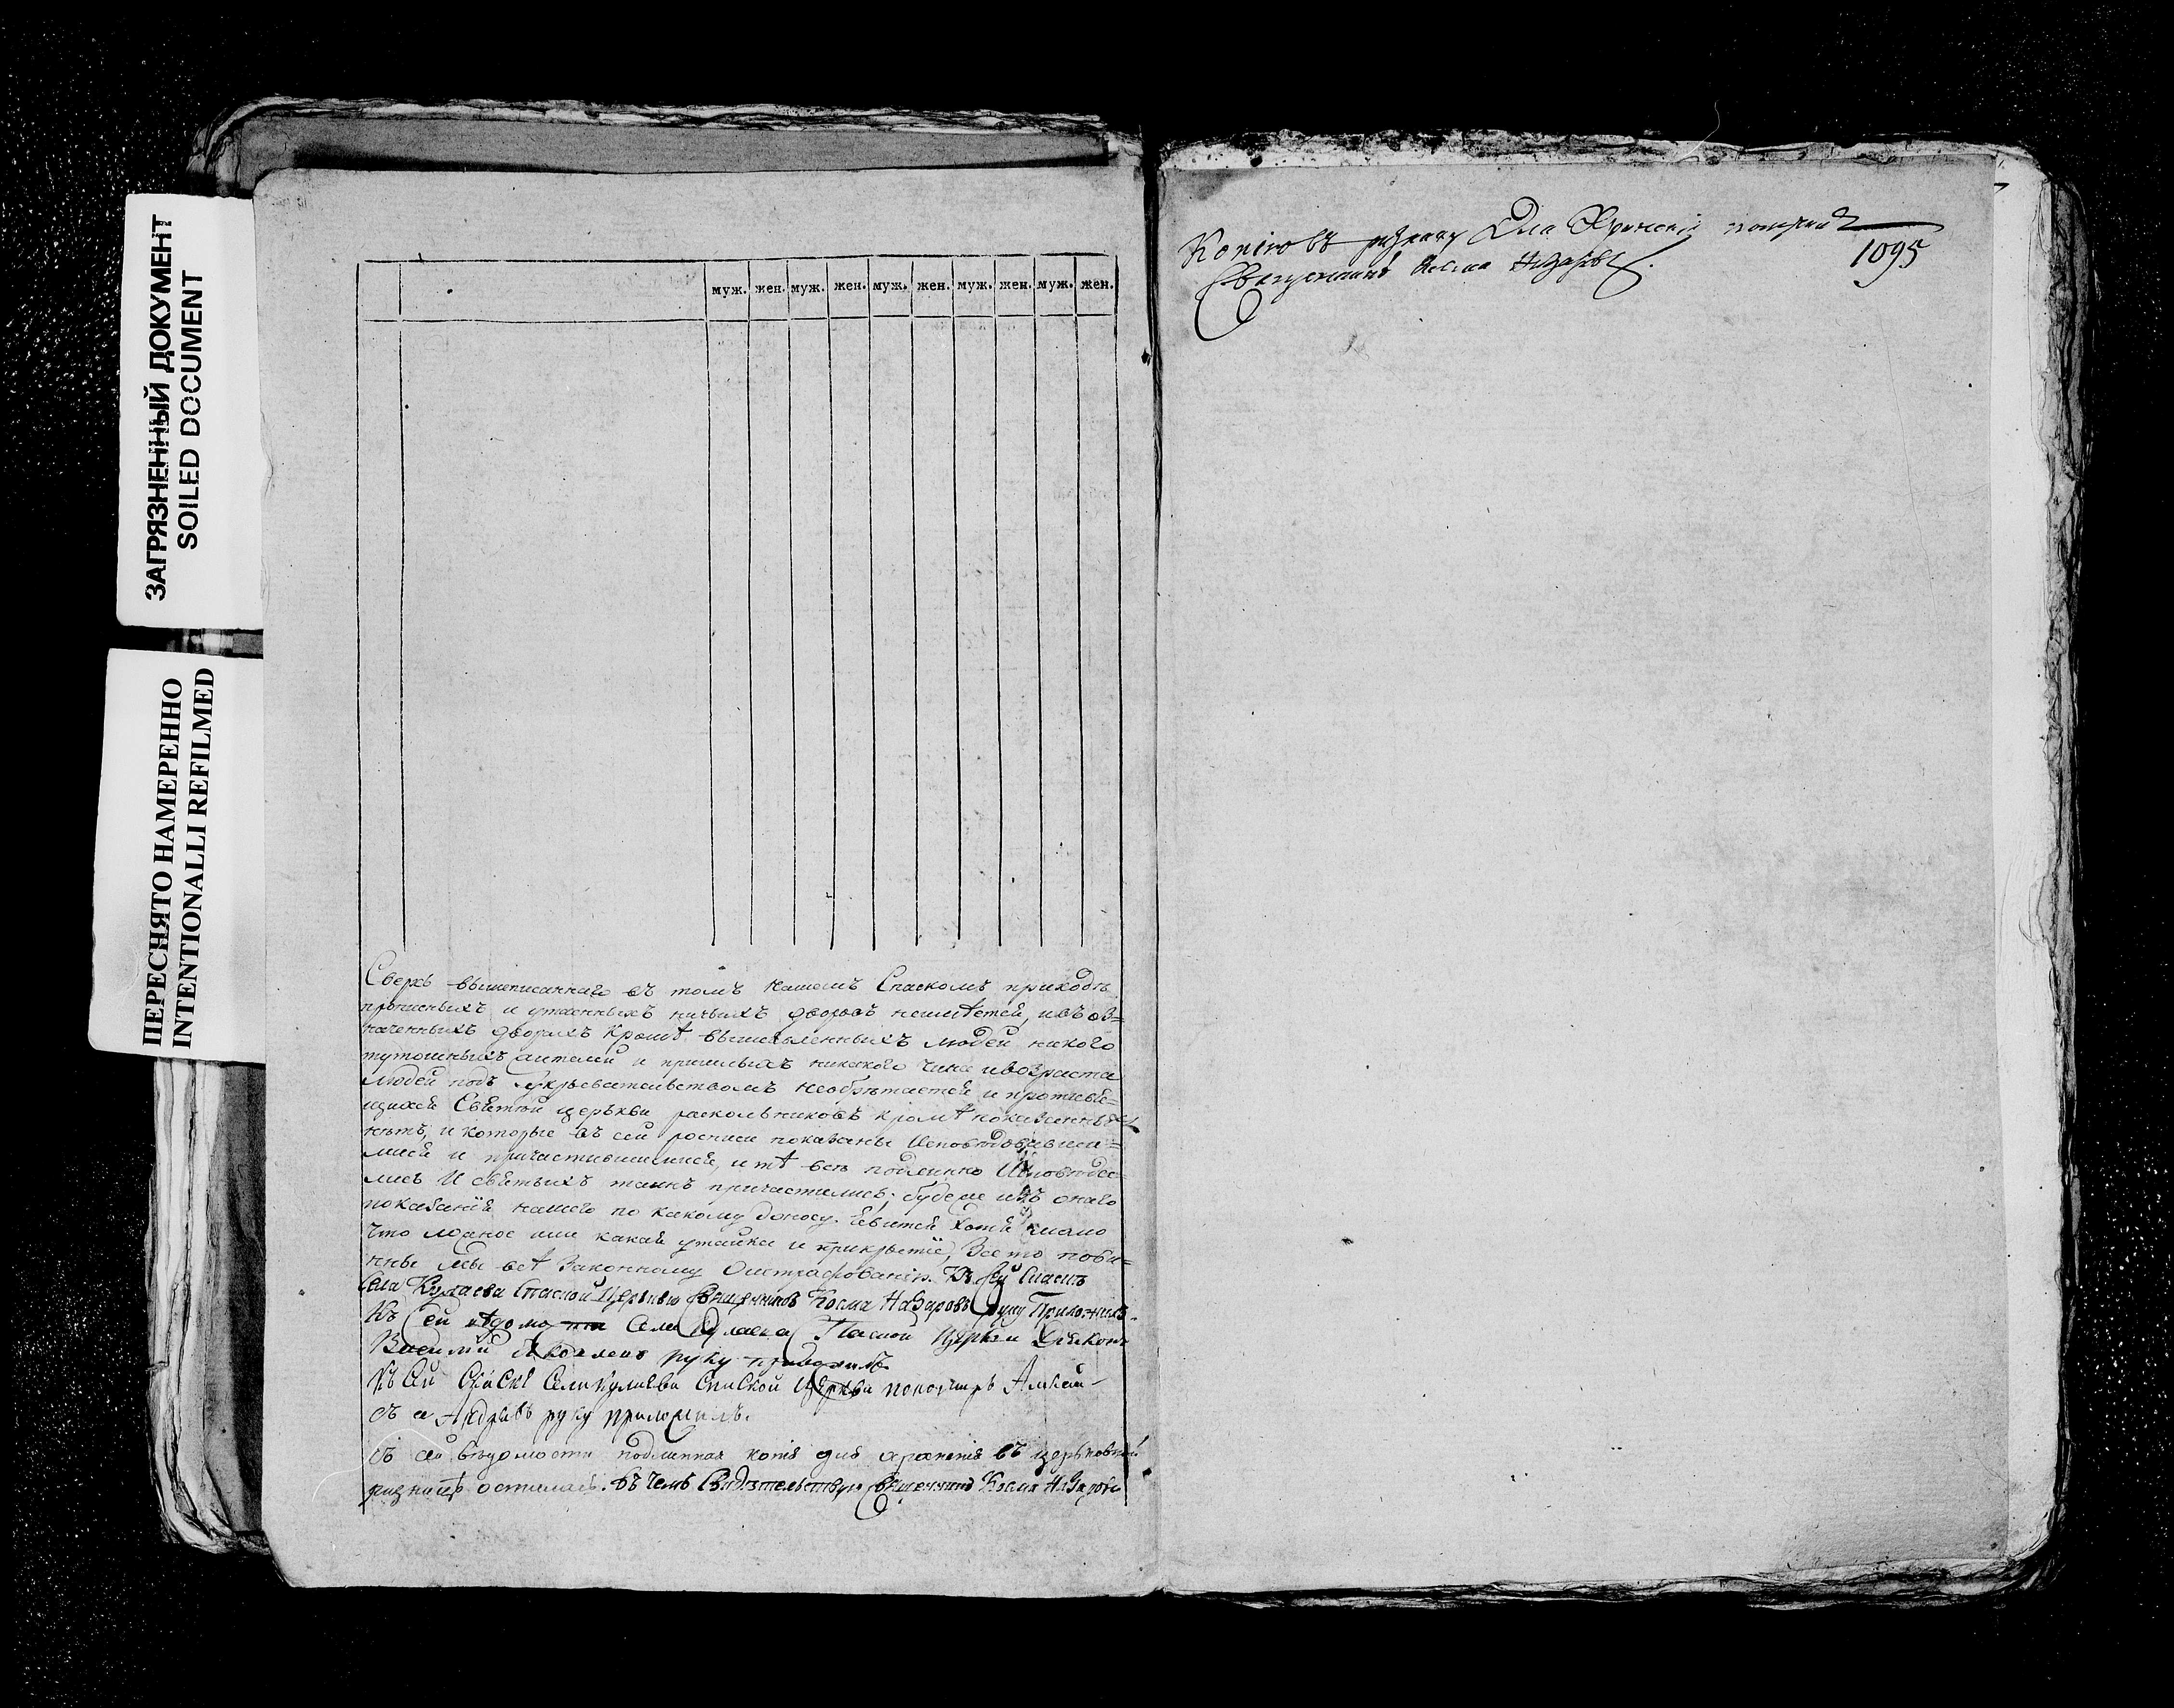 ЗАГРЯЗНЕННЫЙ ДОКУМЕНТ
SOILED DOCUMENT
ПЕРЕСНЯТО НАМЕРЕННО
INTENTIONALLI REFILMED
муж. жен. муж. жен. муж. жен. муж. жен. муж. жен.
Сверхъ вышеписаннаго въ томъ нашемъ Спаскомъ приходѣ
прописныхъ и утаенныхъ ничьихъ дворовъ неимѣетея, ивъ оз=
наченныхъ дворахъ кромѣ вышеявленныхъ людей никого
тутошныхъ жителей и пришлыхъ никакого чина ивозраста
людей подъ укрывательствомъ необрѣтается и противя=
щихся Святой церькви раскольниковъ кромѣ показанныхъ
нѣтъ, и которые въ сей росписи показаны исповѣдовавши=
мися и причастившимися, итѣ всѣ подлинно исповѣдо
лись и святыхъ таинъ причастились; будеже изъ онаго
показанія нашего по какому доносу явится хотя мало
что ложное или какая утайка и прикрытіе, зато пови=
нны мы всѣ законному оштрафованію. Къ сей
села Кулаева Спаской церькви священникъ Косма Назаровъ руку приложилъ.
Къ сей села Кулаева Спаской церкви
Василий руку приложилъ
Къ сей села Кулаева Спаской церкви понамарь Алѣкси
руку приложилъ.
Съ сей вѣдомости подлинная копія для храненія въ церьковной
ризницѣ осталась. Въ чемъ свидѣтельствую священникъ Косма Назаровъ
Копію въ ризницу для храненія получилъ
Священникъ Косма Назаровъ.
1095